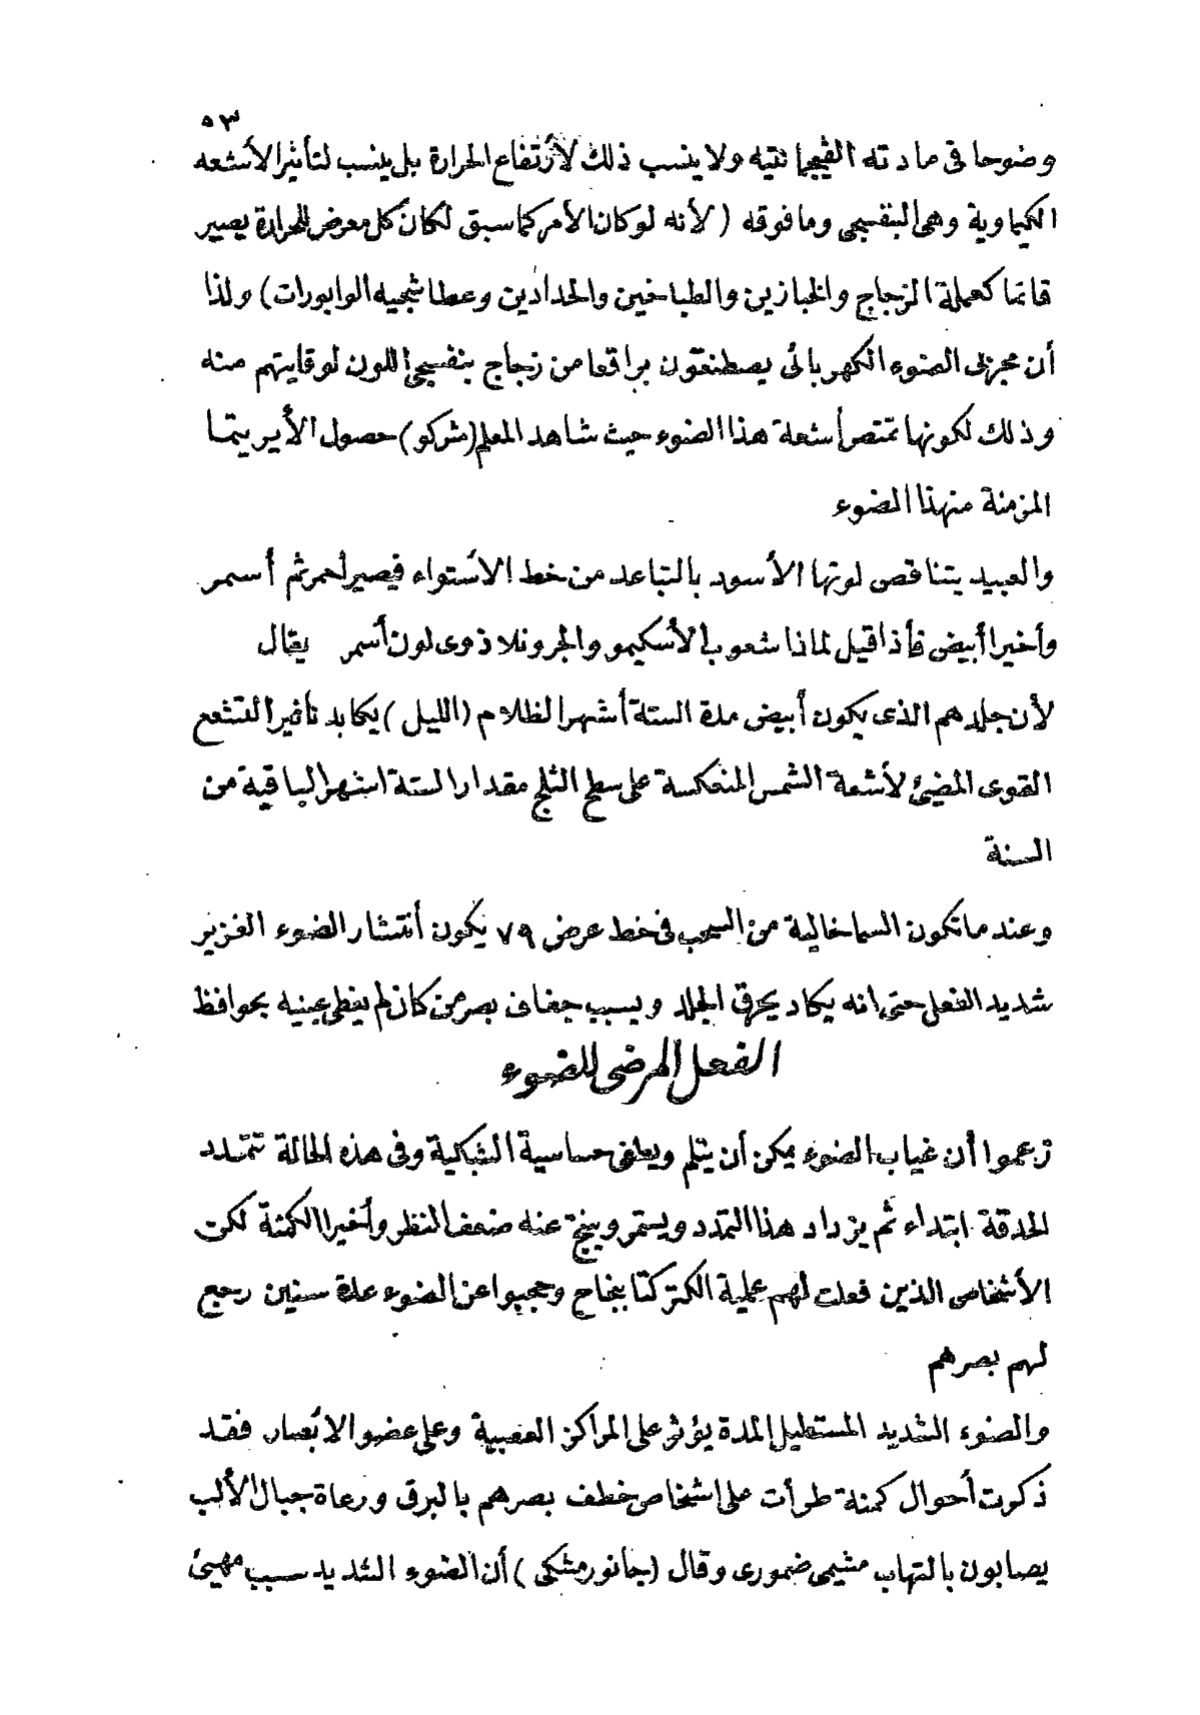 ٥٣
وضوحا فى مادته الڤيجمانتيه ولا ينسب ذلك لأرتفاع الحرارة بل ينسب لتأثير الأشعه
الكيماوية وهى البنفسجى وما فوقه (لأنه لوكان الأمر كما سبق لكان كل معرض للحرارة يصير
قاتما كعملة الزجاج والخبازين والطباخين والحدادين وعطاشجيه الوابورات) ولذا
أن مجربى الضوء الكهربائى يصطنعون براقعا من زجاج بنفسجى اللون لوقايتهم منه
وذلك لكونها تمتص أشعة هذا الضوء حيث شاهد المعلم (شركو) حصول الأيريتما
المزمنة من هذا الضوء
والعبيد يتناقص لونها الأسود بالتباعد من خط الأستواء فيصير أحمر ثم أسمر
وأخيرا أبيض فأذا قيل لماذا شعوب الأسكيمو والجرونلاد ذوى لون أسمر يقال
لأن جلدهم الذى يكون أبيض مدة الستة أشهر الظلام (الليل) يكابد تأثير التشعع
القوى المضيئ لأشعة الشمس المنعكسة على سطح الثلج مقدار الستة اشهر الباقية من
السنة
وعند ما تكون السما خالية من السحب فى خط عرض ٧٩ يكون أنتشار الضوء الغزير
شديد الفعل حتى انه يكاد يحرق الجلد ويسبب جفاف بصر من كان لم يغطى عينيه بحوافظ
الفعل المرضى للضوء
زعموا أن غياب الضوء يمكن أن يثلم ويطفى حساسية الشبكية وفى هذه الحالة تتمدد
الحدقة ابتداء ثم يزداد هذا التمدد ويستمر وينتج عنه ضعف النظر وأخيرا الكمنة لكن
الأشخاص الذين فعلت لهم عملية الكتركتا بنجاح وحجبوا عن الضوء عدة سنين رجع
لهم بصرهم
والضوء الشديد المستطيل المدة يؤثر على المراكز العصبية وعلى عضو الأبصار فقد
ذكرت أحوال كمنة طرأت على اشخاص خطف بصرهم بالبرق ورعاة جبال الألب
يصابون بالتهاب مشيمى ضمورى وقال (جانورمشكى) أن الضوء الشديد سبب مهيئ